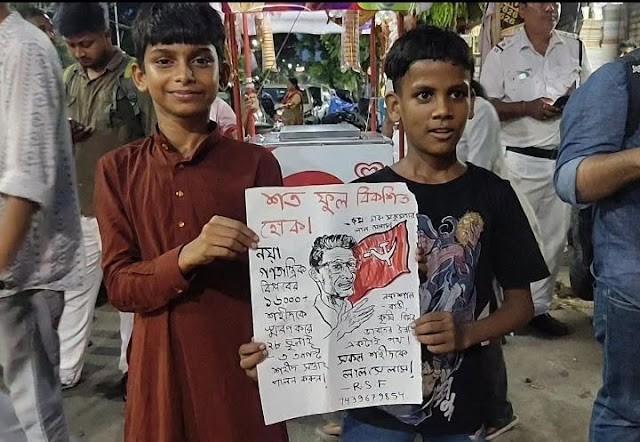 শত ফুল বিকশিত
হোক।
নয়া
গণতান্ত্রিক
বিপ্লবের
১৬০০০+
শহীদকে
স্মরণ করে
২৮ জুলাই
- ৩ আগস্ট
শহীদ সপ্তাহ
পালন করুন।
নকশাল
বাড়ী
একটাই পথ।
সকল শহীদকে
লাল সেলাম!
- R.S.F
9439679854